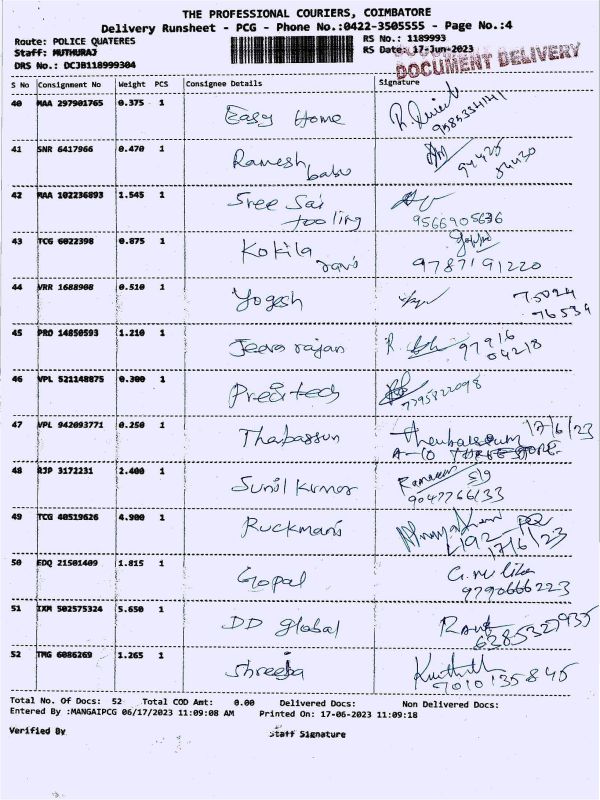 THE PROFESSIONAL COURIERS, COIMBATORE
Delivery Runsheet - PCG - Phone No.:0422-3505555 - Page No.:4
Route: POLICE QUATERES RS No.: 1189993
Staff: MUTHURAJ RS Date: 17-Jun-2023
DRS No.: DCJB118999304
DOCUMENT DELIVERY
S No Consignment No Weight PCS Consignee Details Signature
40 MAA 297901765 0.375 1 Easy Home
41 SNR 6417966 0.470 1 Ramesh babu
42 MAA 102236893 1.545 1 Sree Sai tooling
9566905636
43 TCG 6022398 0.875 1 Kokila
9787191220
44 VRR 1688908 0.510 1 Yogesh
75024
76534
45 PRO 14850593 1.210 1 Jeeva rajan
97916
04218
46 VPL 521148875 0.300 1
47 VPL 942093771 0.250 1 Thabassun 17/6/23
48 RJP 3172231 2.400 1 Sunil Kumar
9047766133
49 TCG 40519626 4.900 1 Ruckmani
17/6/23
50 EDQ 21501409 1.815 1 Gopal
9790666223
51 IXM 502575324 5.650 1 DD global
6285327935
52 TMG 6086269 1.265 1 Shreeja
7010135845
Total No. Of Docs: 52 Total COD Amt: 0.00 Delivered Docs: Non Delivered Docs:
Entered By :MANGAIPCG 06/17/2023 11:09:08 AM Printed On: 17-06-2023 11:09:18
Verified By Staff Signature